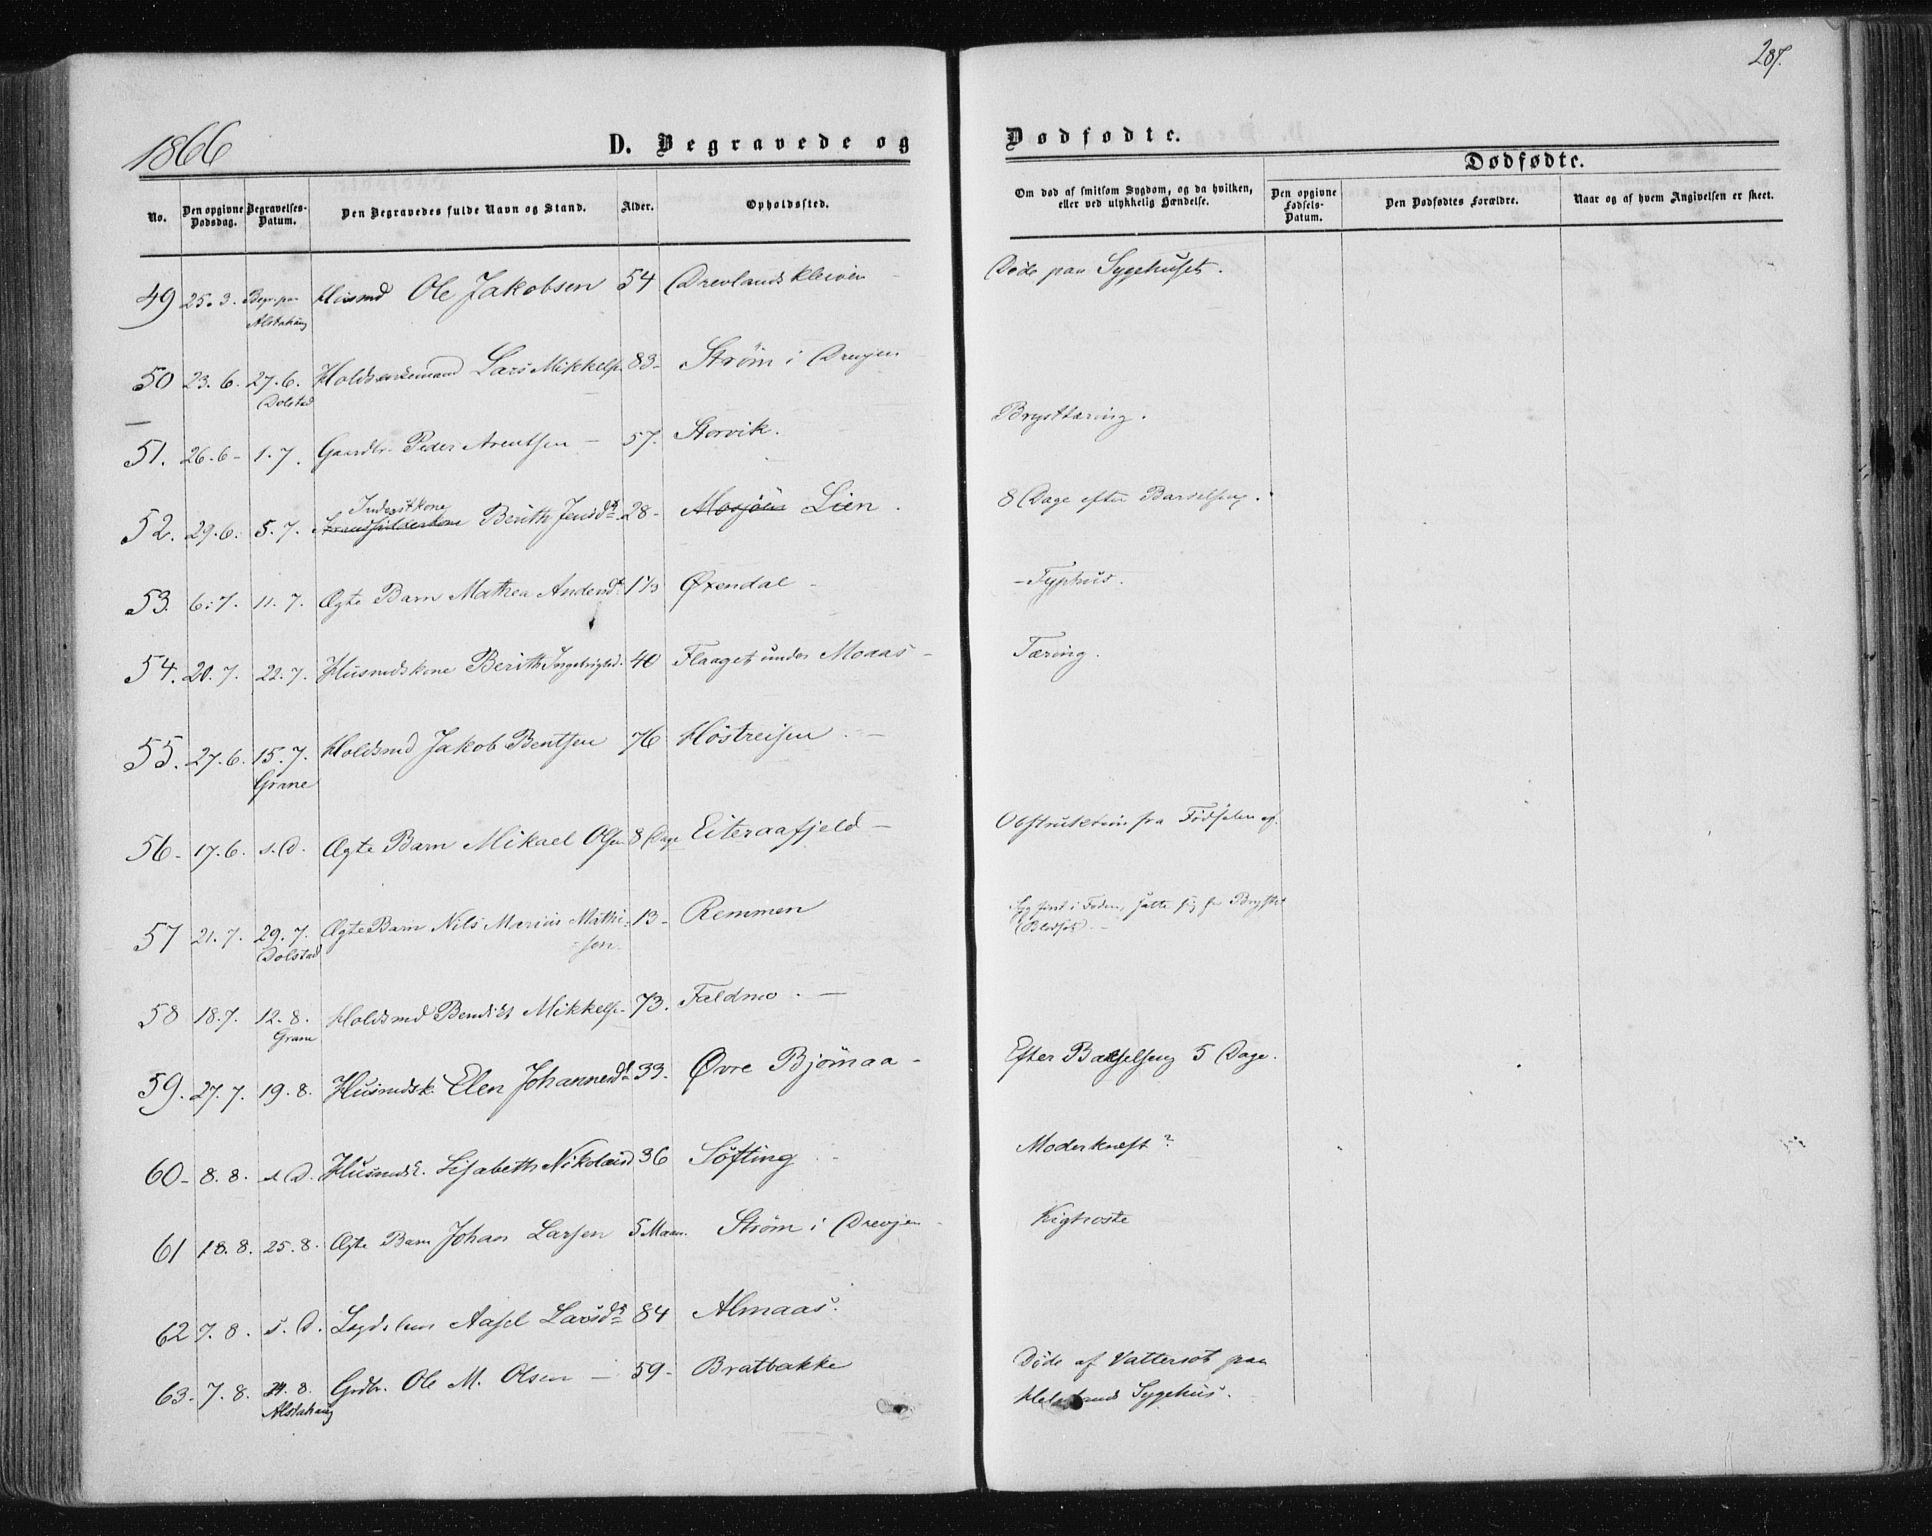 287.
1866
D. Begravede og Dødfødte.
Dødfødte.
No.
Den opgivne Dødsdag.
Begravelses-Datum.
Den Begravedes fulde Navn og Stand.
Alder.
Opholdssted.
Om død af smitsom Sygdom, og da hvilken, eller ved ulykkelig Hændelse.
Den opgivne Fødsels-Datum.
Den Dødfødtes Forældre.
Naar og af hvem Angivelsen er skeet.
49 25.3. Begr. paa Alstahaug Husmd Ole Jakobsen 54 Drevlandskleiven Døde paa Sygehuset.
50 23.6. 27.6. Dolstad Lars Mikkels. 83- Strøm i Drevjen
51. 26.6- 1.7. Gaardbr. Peder Arentsen - 57. Storvik. Brysttæring.
52. 29.6. 5.7. Inderstkone Berith Jensdt. 28- Mosjøen Lien. 8 Dage efter Barselseng.
53. 6.7. 11.7. Ægte Barn Mathea Andersdt. 1 1/3 Øxendal - Typhus.
54. 20.7. 22.7. Husmdskone Berith Ingebrigtsd. 40 Flaaget under Moaas - Tæring.
55. 27.6. 15.7. Grane Holdsmd Jakob Bentsen 76 Høstreisen. -
56- 17.6. s.D. Ægte Barn Mikael Olsen 8 Dage Eiteraafjeld - Obstruktion fra Fødselen af.
57 21.7. 29.7. Dolstad Ægte Barn Nils Marius Mathisen 13- Remmen Syg først i Foden, satte sig for Brystet
58 18.7. 12.8. Grane Holdsmd Bendikt Mikkels. 73. Faldmo. -
59. 27.7. 19.8. Husmdsk. Elen Johannesdt. 33. Øvre Bjørnaa - Efter Barselseng 5 Dage.
60- 8.8. s.D. Husmdsk. Lisabeth Nikolaisd 36 Søfting Moderkræft?
61 18.8. 25.8. Ægte Barn Johan Larsen 5 Maan. Strøm i Drevjen Kighoste
62 7.8. s.D. Lægdslem Aasel Larsdt. 84 Almaas.
63- 7.8. 24.8. Alstahaug Grdbr. Ole M. Olsen - 59- Bratbakke Døde af Vattersot paa
Helgelands Sygehus.